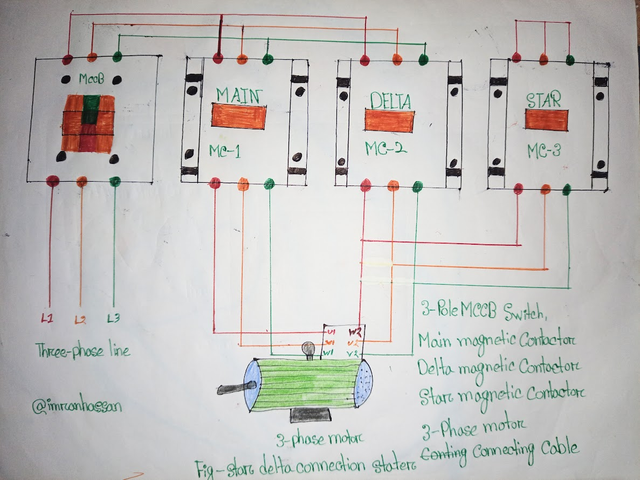 MCCB
MAIN
MC-1
DELTA
MC-2
STAR
MC-3
L1 L2 L3
Three-phase line
@imranhossan
U1 W2
V1 U2
W1 V2
3-phase motor
Fig-Star delta connection staters
3-Pole MCCB Switch,
Main magnetic Contactor
Delta magnetic Contactor
Star magnetic Contactor
3-Phase motor
Connecting Cable